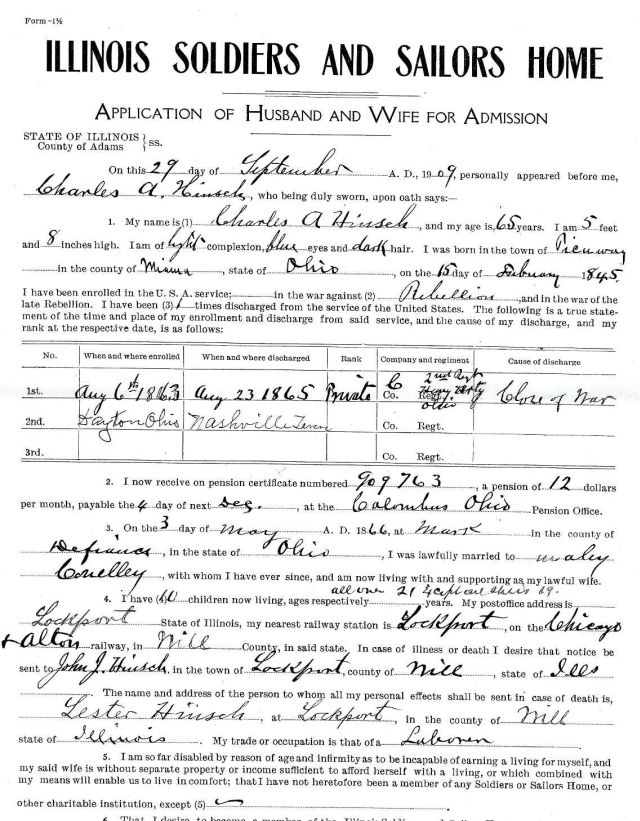 Form-1½
ILLINOIS SOLDIERS AND SAILORS HOME
APPLICATION OF HUSBAND AND WIFE FOR ADMISSION
STATE OF ILLINOIS } ss.
County of Adams
On this 29 day of September A. D., 1909, personally appeared before me,
Charles A. Hinsch, who being duly sworn, upon oath says:—
1. My name is (1) Charles A Hinsch, and my age is 65 years. I am 5 feet
and 8 inches high. I am of light complexion, blue eyes and dark hair. I was born in the town of
in the county of, state of Ohio, on the 15 day of February 1845.
I have been enrolled in the U. S. A. service; in the war against (2) Rebellion, and in the war of the
late Rebellion. I have been (3) 1 times discharged from the service of the United States. The following is a true state-
ment of the time and place of my enrollment and discharge from said service, and the cause of my discharge, and my
rank at the respective date, is as follows:
No. When and where enrolled When and where discharged Rank Company and regiment Cause of discharge
1st. Aug 6th 1863 Aug 23 1865 Private Co. C Regt. 2nd Regt Hvy Arty Ohio Close of War
2nd. Dayton Ohio Nashville Tenn Co. Regt.
3rd. Co. Regt.
2. I now receive on pension certificate numbered 909763, a pension of 12 dollars
per month, payable the 4 day of next Dec., at the Colombus Ohio Pension Office.
3. On the 3 day of May A. D. 1866, at Mark in the county of
Defiance, in the state of Ohio, I was lawfully married to
, with whom I have ever since, and am now living with and supporting as my lawful wife.
all over 21 Except one she is 19.
4. I have (4) children now living, ages respectively years. My postoffice address is
Lockport State of Illinois, my nearest railway station is Lockport, on the Chicago
+ Alton railway, in Will County, in said state. In case of illness or death I desire that notice be
sent to John J. Hinsch, in the town of Lockport, county of Will, state of Ills
The name and address of the person to whom all my personal effects shall be sent in case of death is,
Lester Hinsch, at Lockport, in the county of Will
state of Illinois. My trade or occupation is that of a Laborer
5. I am so far disabled by reason of age and infirmity as to be incapable of earning a living for myself, and
my said wife is without separate property or income sufficient to afford herself with a living, or which combined with
my means will enable us to live in comfort; that I have not heretofore been a member of any Soldiers or Sailors Home, or
other charitable institution, except (5)